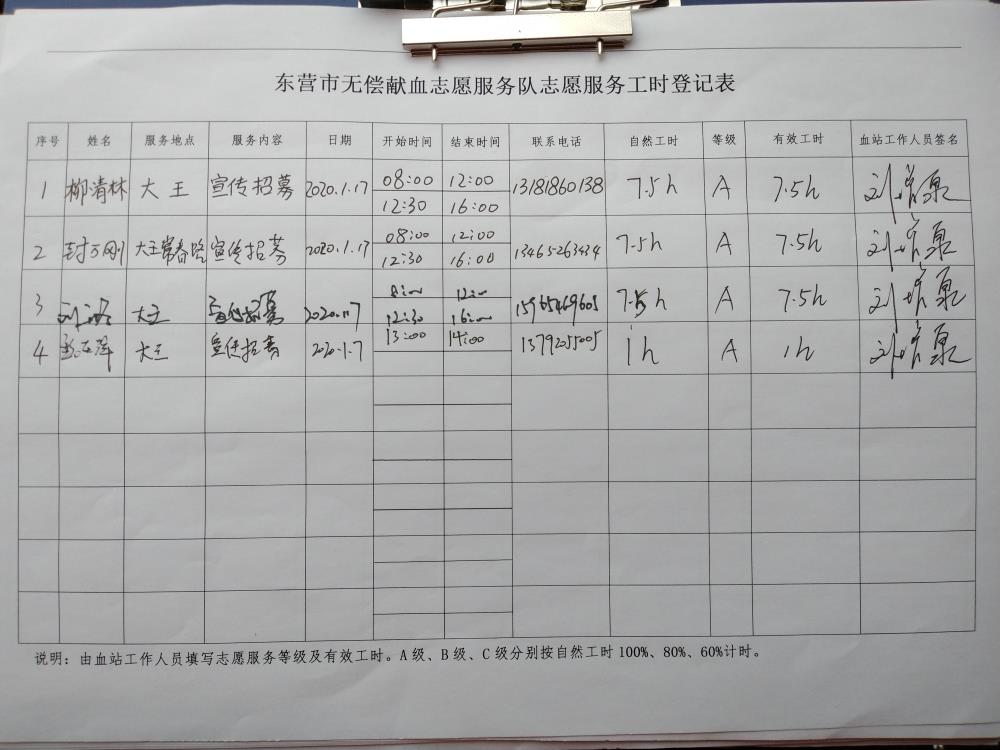 东营市无偿献血志愿服务队志愿服务工时登记表
序号 姓名 服务地点 服务内容 日期 开始时间 结束时间 联系电话 自然工时 等级 有效工时 血站工作人员签名
1 柳清林 大王 宣传招募 2020.1.17 08:00 12:00 13181860138 7.5h A 7.5h 刘培泉
12:30 16:00
2 封万刚 大王常春路 宣传招募 2020.1.17 08:00 12:00 13465263434 7.5h A 7.5h 刘培泉
12:30 16:00
3 大王 宣传招募 2020.1.17 8:00 12:00 15965469605 7.5h A 7.5h 刘培泉
12:30 16:00
4 大王 宣传招募 2020.1.7 13:00 14:00 1h A 1h 刘培泉
说明：由血站工作人员填写志愿服务等级及有效工时。A级、B级、C级分别按自然工时100%、80%、60%计时。